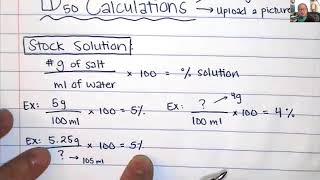 LD50 Calculations → Upload a picture
Stock Solution:
# g of salt / ml of water × 100 = % solution
Ex: 5g / 100 ml × 100 = 5%
Ex: ? → 4g / 100 ml × 100 = 4%
Ex: 5.25g / ? → 105 ml × 100 = 5%